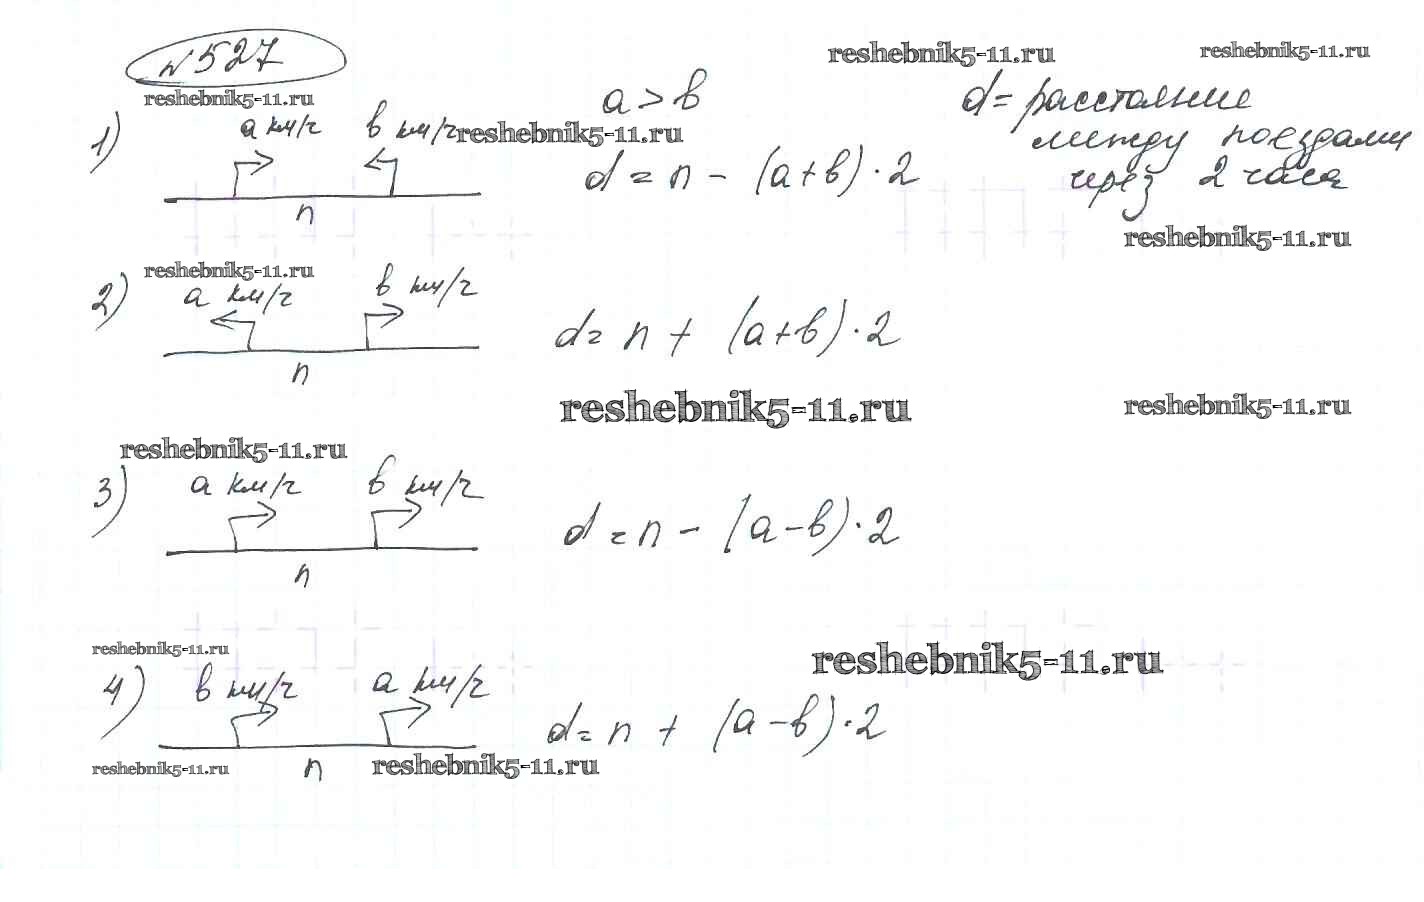 № 527
reshebnik5-11.ru
reshebnik5-11.ru
reshebnik5-11.ru
a > b
d = расстояние
между поездами
через 2 часа
1)
a км/ч b км/ч
reshebnik5-11.ru
d = n - (a+b) · 2
n
reshebnik5-11.ru
reshebnik5-11.ru
2)
a км/ч b км/ч
d = n + (a+b) · 2
n
reshebnik5-11.ru
reshebnik5-11.ru
reshebnik5-11.ru
3)
a км/ч b км/ч
d = n - (a-b) · 2
n
reshebnik5-11.ru
reshebnik5-11.ru
4)
b км/ч a км/ч
d = n + (a-b) · 2
reshebnik5-11.ru
n
reshebnik5-11.ru